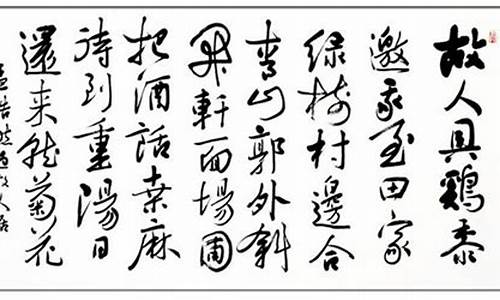 故人具鷄黍
邀我至田家
绿樹村邊合
青山郭外斜
開軒面場圃
把酒話桑麻
待到重陽日
還来就菊花
孟浩然過故人